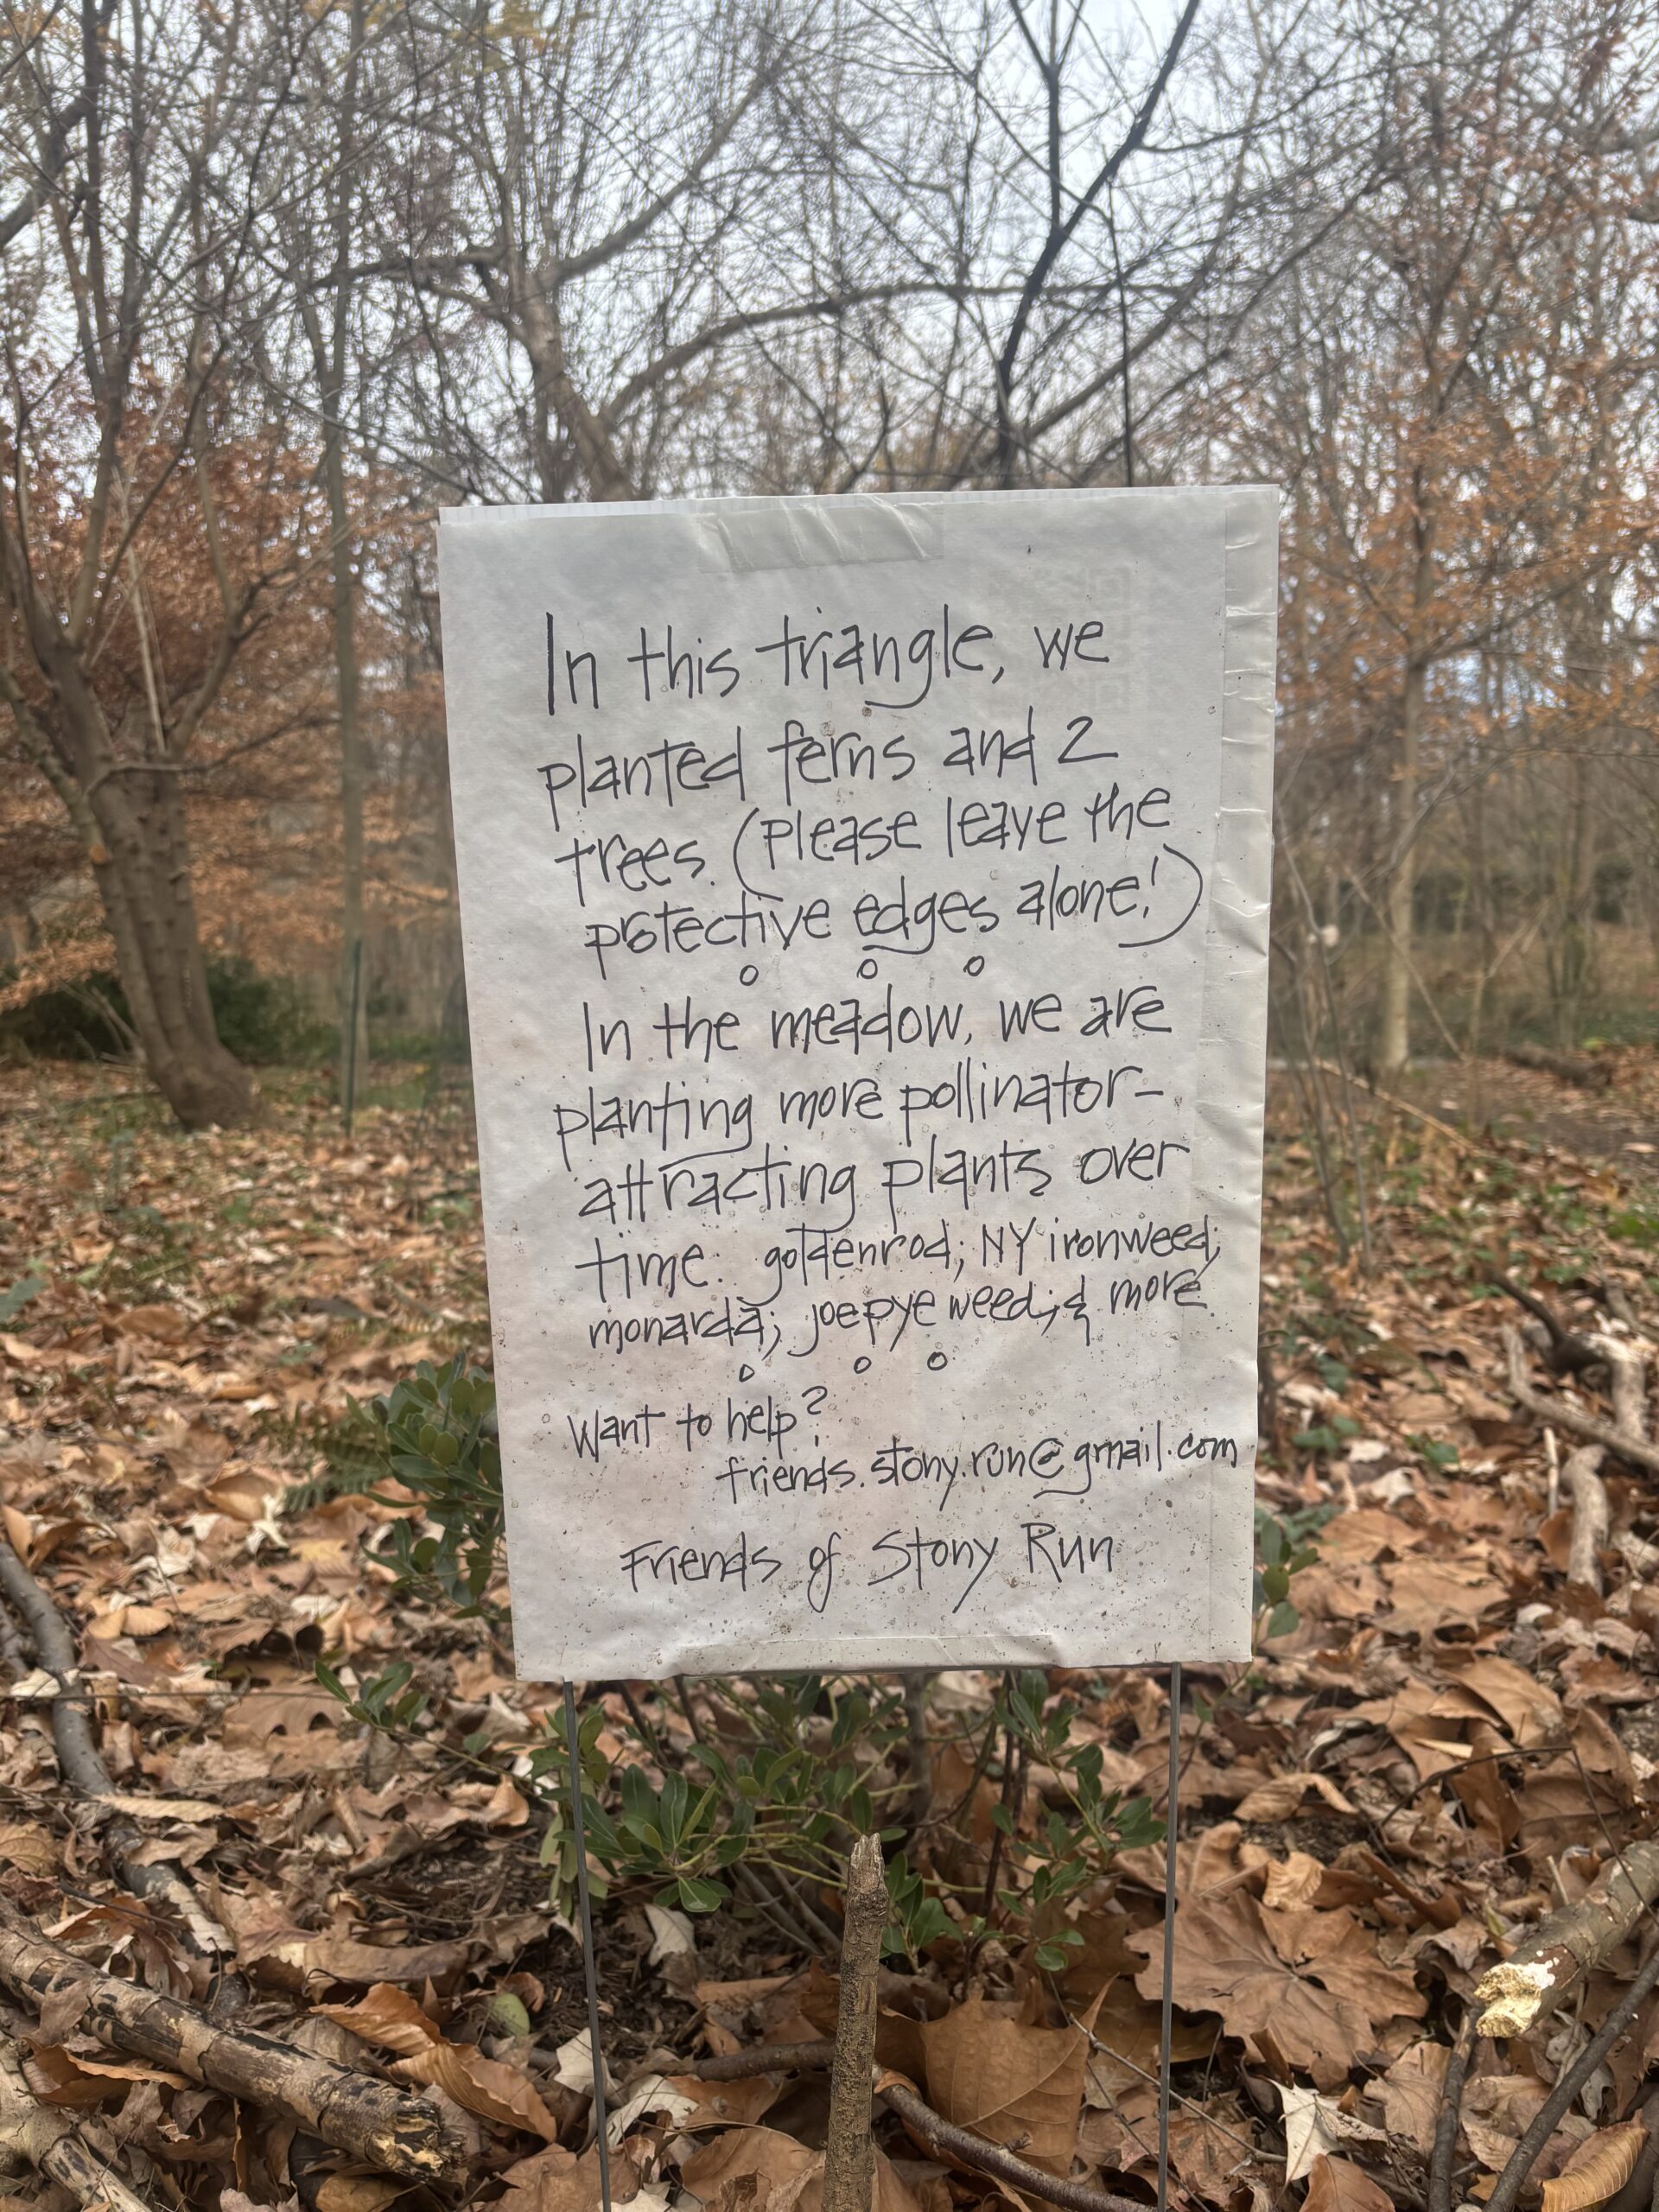 In this triangle, we
planted ferns and 2
trees. (Please leave the
protective edges alone!)
o o o
In the meadow, we are
planting more pollinator-
attracting plants over
time: goldenrod; NY ironweed;
monarda; joepye weed; & more.
o o o
Want to help?
friends.stony.run@gmail.com
Friends of Stony Run